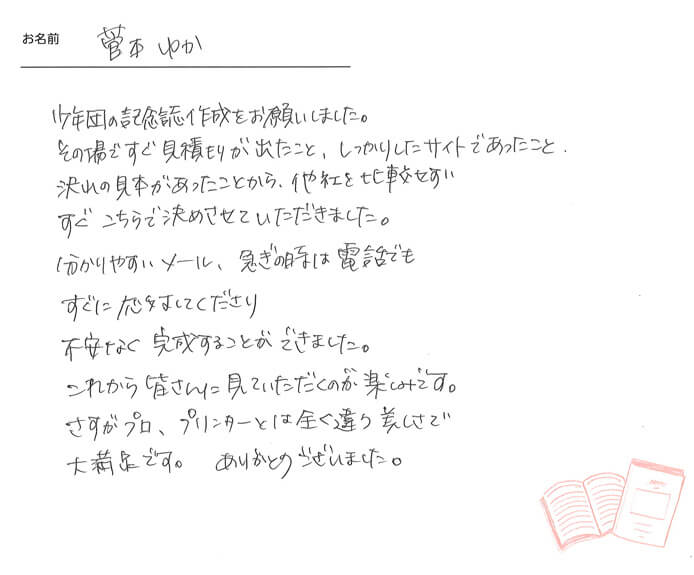 お名前 菅本 ゆか
少年団の記念誌作成をお願いしました。
その場ですぐ見積もりが出たこと、しっかりしたサイトであったこと、
沢山の見本があったことから、他社を比較せずに
すぐこちらで決めさせていただきました。
分かりやすいメール、急ぎの時は電話でも
すぐに応対してくださり
不安なく完成することができました。
これから皆さんに見ていただくのが楽しみです。
さすがプロ、プリンターとは全く違う美しさで
大満足です。 ありがとうございました。